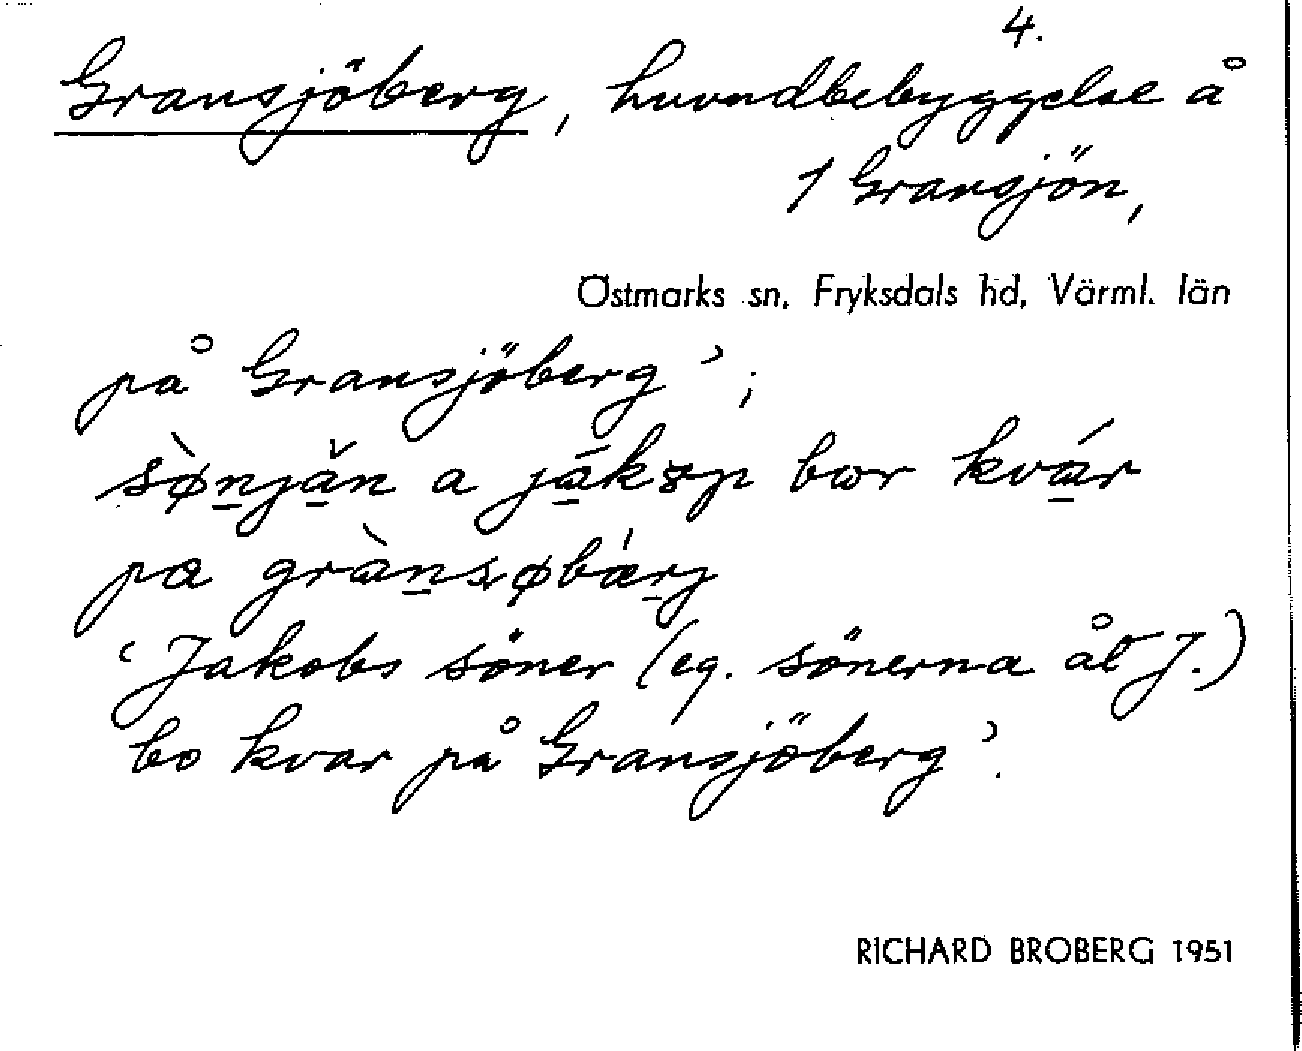 4.
Gransjöberg, huvudbebyggelse å
1 Gransjön,
Östmarks sn, Fryksdals hd, Värml. län
på Gransjöberg’;
sø̀njăn a ják bor kvár
pa grànsøbǽrj
‘Jakobs söner (eg. sönerna åt J.)
bo kvar på Gransjöberg’.
RICHARD BROBERG 1951